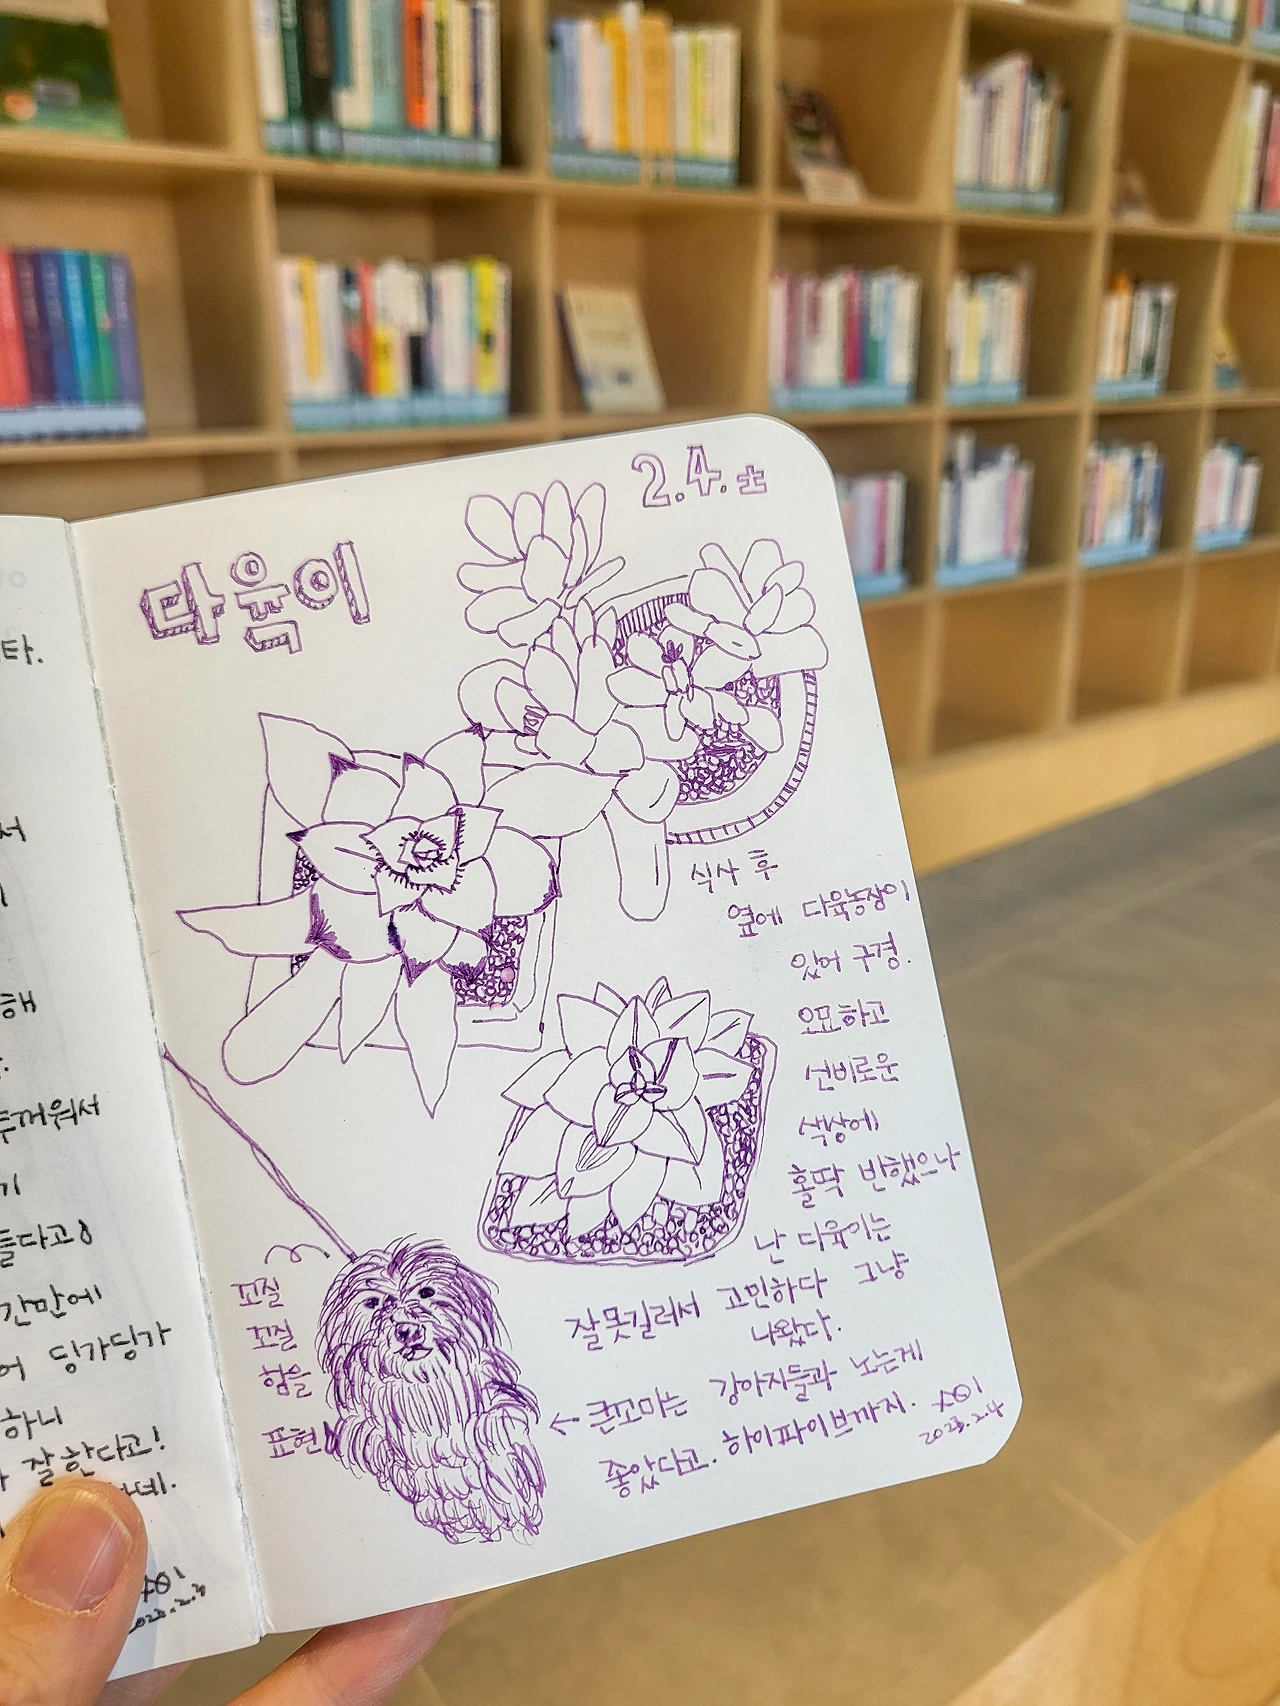 타.
서
해
두꺼워서
기
들다고
간만에
어 딩가딩가
하니
잘한다고!
2023.2.4
2.4.土
다육이
식사 후
옆에 다육농장이
있어 구경.
오묘하고
신비로운
색상에
홀딱 반했으나
난 다육이는
잘못길러서 고민하다 그냥
나왔다.
꼬질
꼬질
함을
표현
← 큰꼬마는 강아지들과 노는게
좋았다고. 하이파이브까지.
2023.2.4